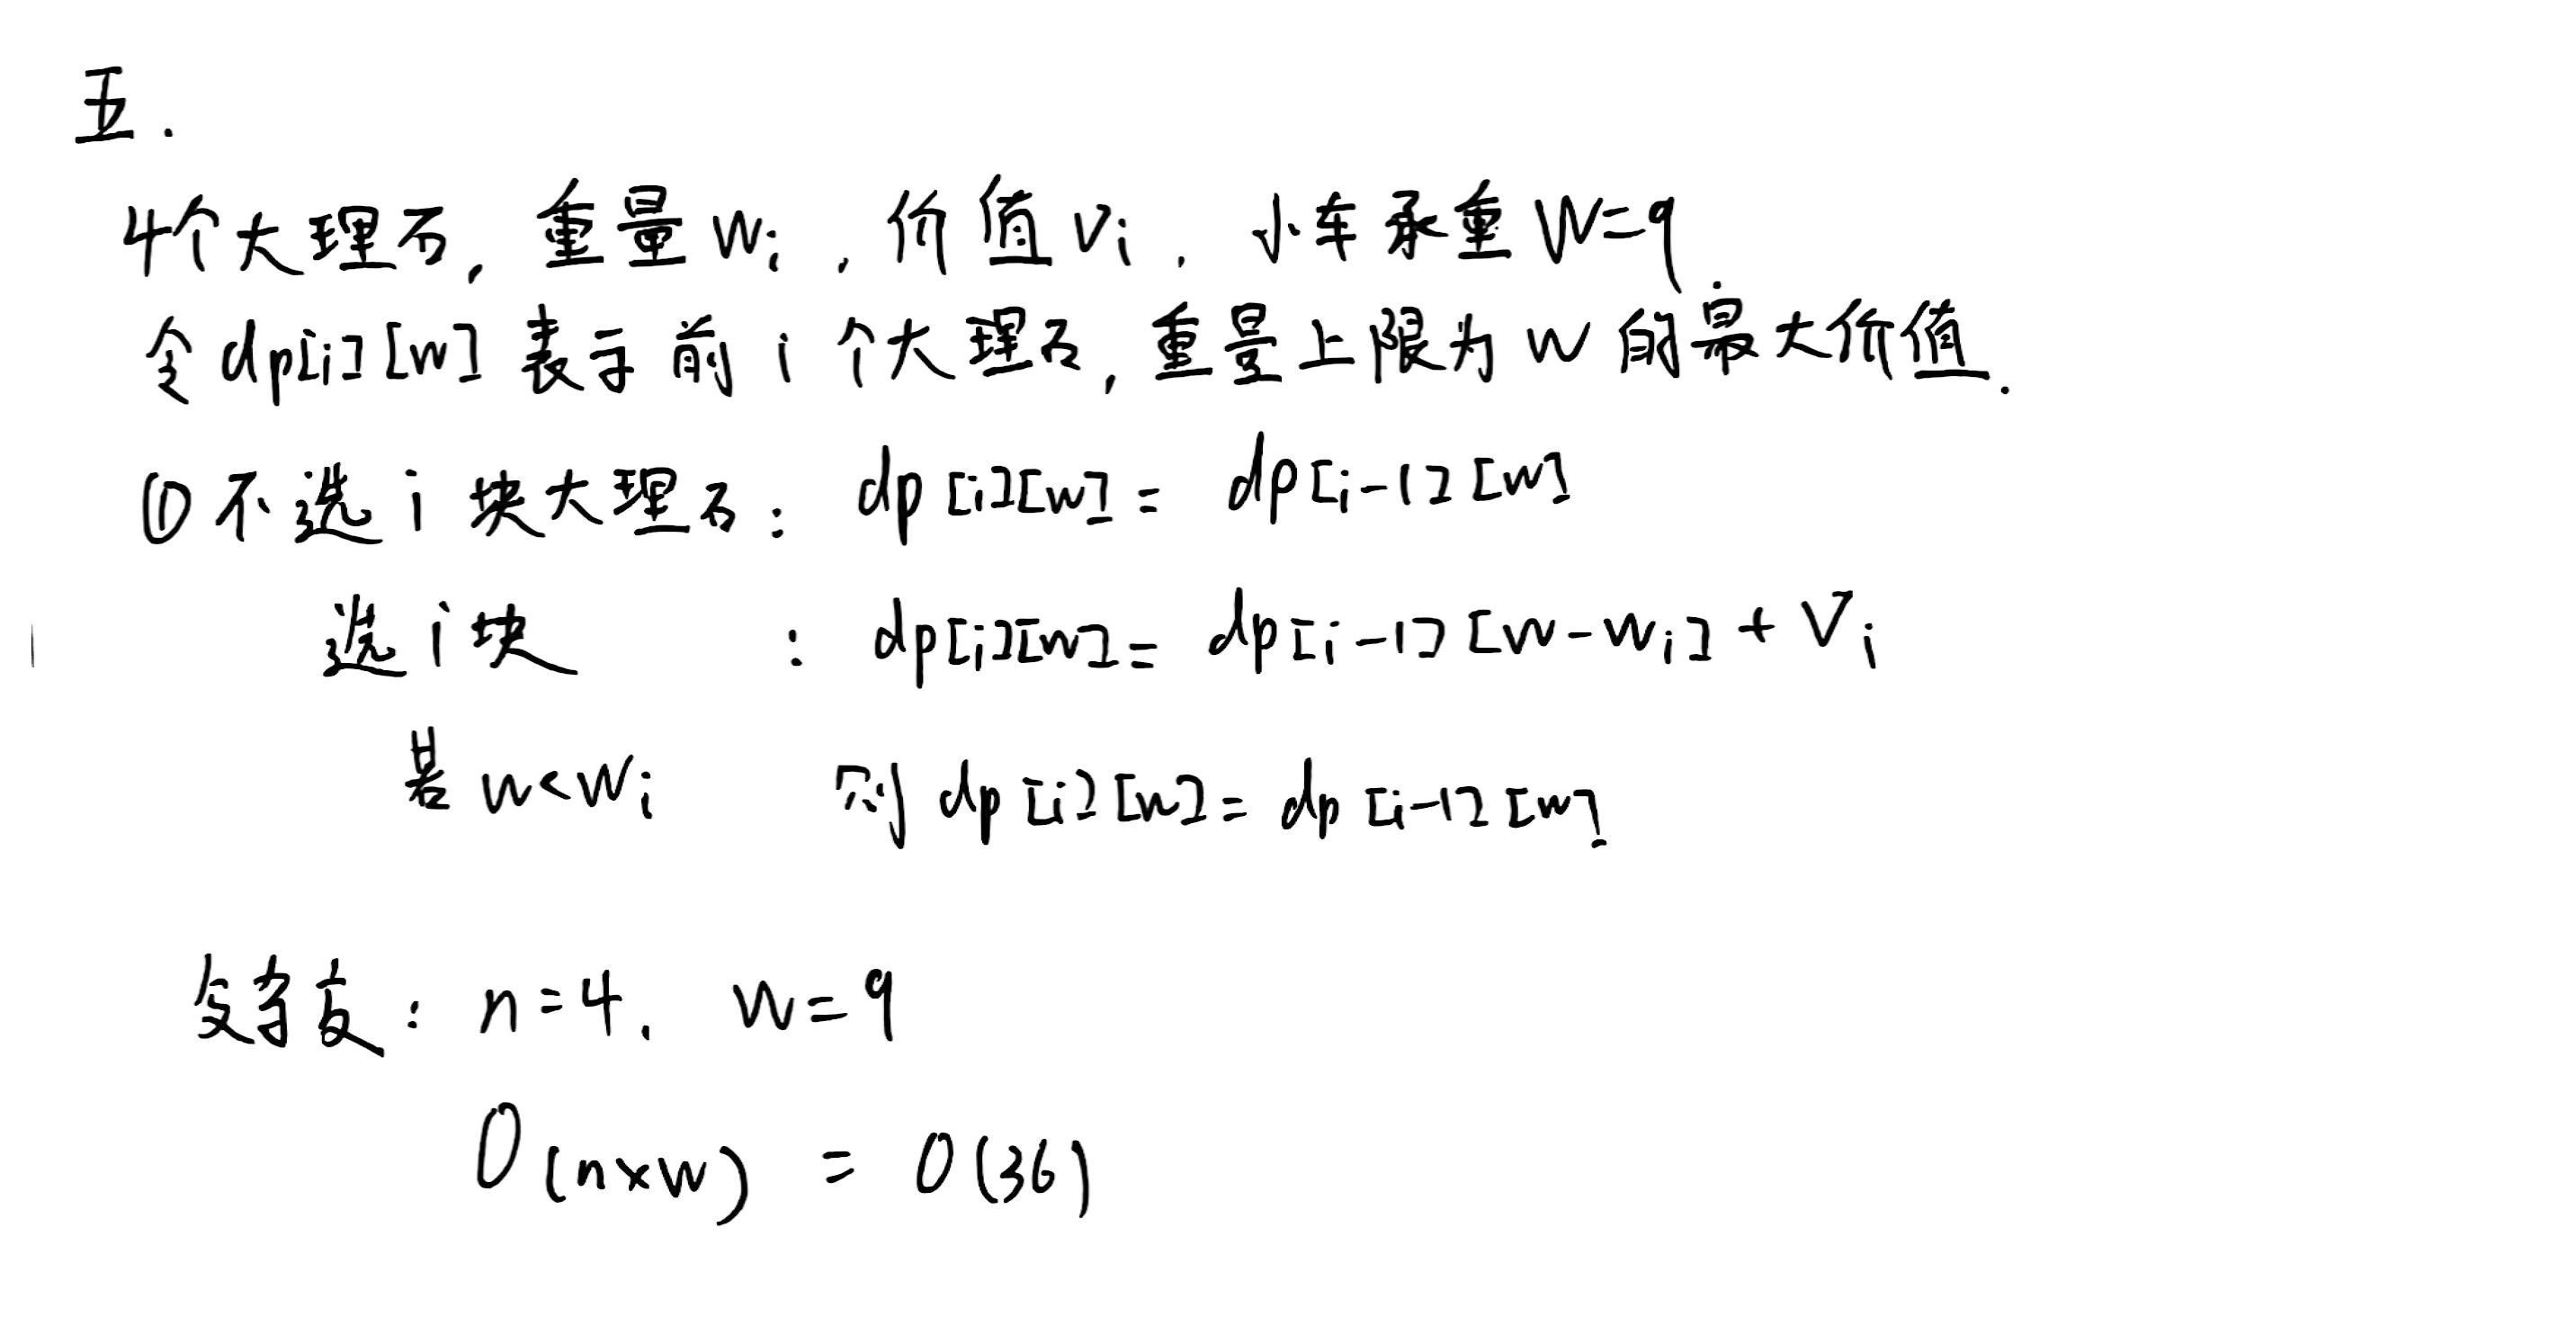 五.
4个大理石, 重量 wi , 价值 vi , 小车承重 W=9.
令 dp[i][w] 表示前 i 个大理石, 重量上限为 w 的最大价值.
① 不选 i 块大理石: dp[i][w] = dp[i-1][w]
选 i 块 : dp[i][w] = dp[i-1][w-wi] + Vi
若 w<wi 则 dp[i][w] = dp[i-1][w]
复杂度: n=4. W=9
O(n×w) = O(36)